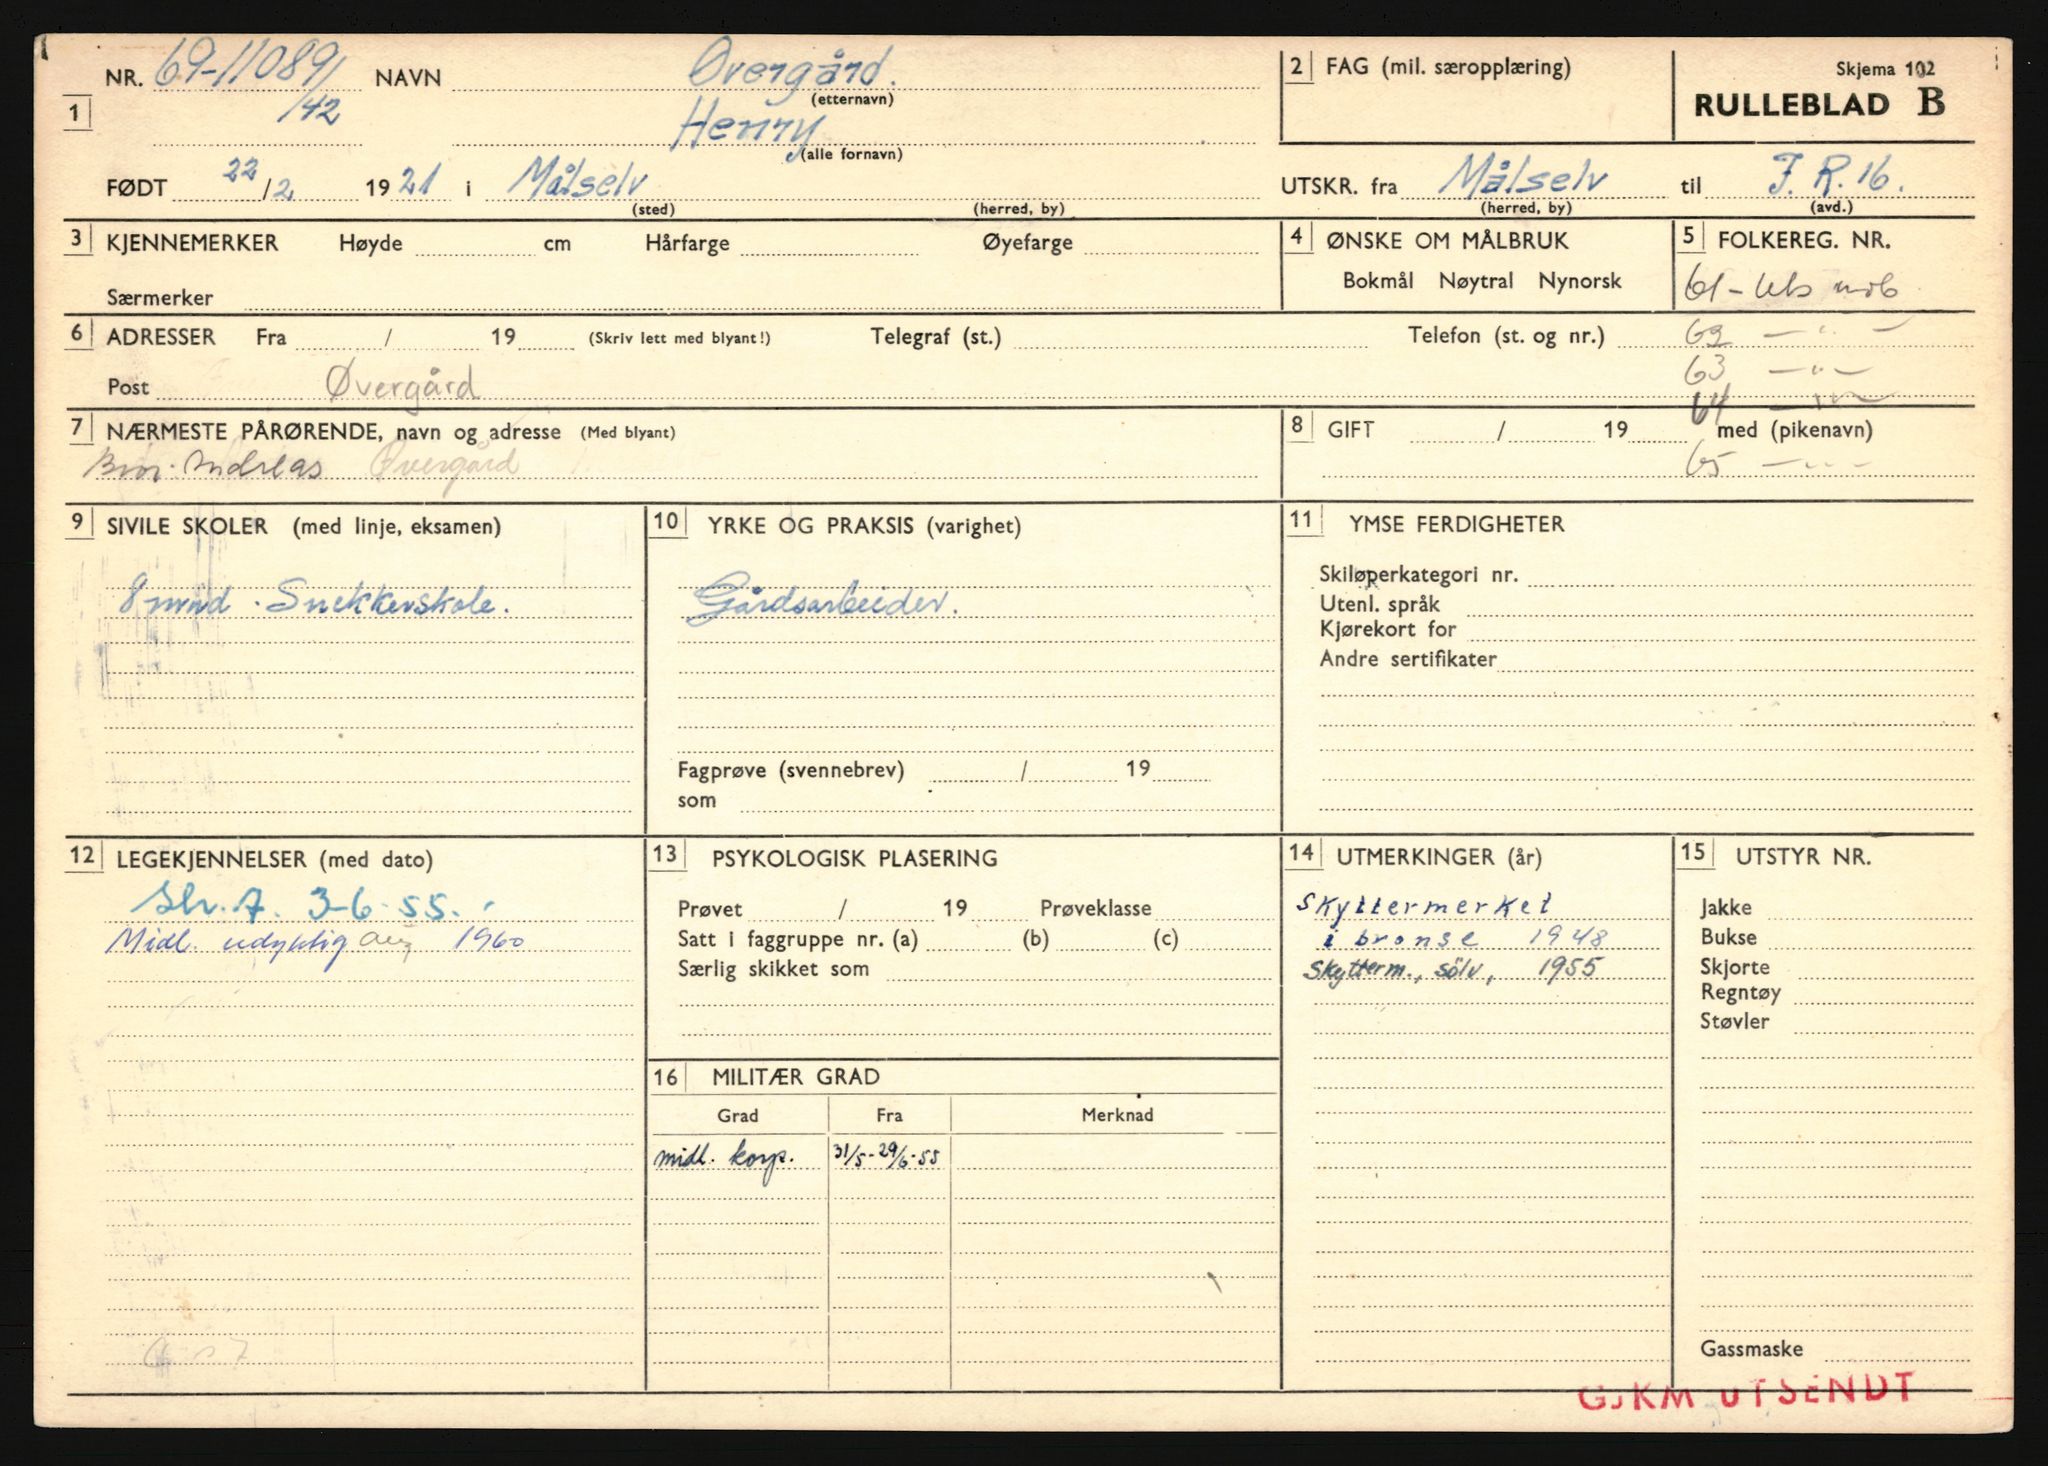 NR. 69-11089/ NAVN Øvergård. (etternavn)
1 /42 Henry (alle fornavn)
FØDT 22/2 1921 i Målselv (sted) (herred, by)
2 FAG (mil. særopplæring)
Skjema 102
RULLEBLAD B
UTSKR. fra Målselv (herred, by) til J.R.16. (avd.)
3 KJENNEMERKER Høyde cm Hårfarge Øyefarge
Særmerker
4 ØNSKE OM MÅLBRUK
Bokmål Nøytral Nynorsk
5 FOLKEREG. NR.
61 - mob
62 — " —
63 — " —
64 — " —
65 — " —
6 ADRESSER Fra / 19 (Skriv lett med blyant!) Telegraf (st.) Telefon (st. og nr.)
Post Øvergård
7 NÆRMESTE PÅRØRENDE, navn og adresse (Med blyant)
Bror. Andreas Øvergård
8 GIFT / 19 med (pikenavn)
9 SIVILE SKOLER (med linje, eksamen)
8 mnd. Snekkerskole.
10 YRKE OG PRAKSIS (varighet)
Gårdsarbeider.
Fagprøve (svennebrev) / 19
som
11 YMSE FERDIGHETER
Skiløperkategori nr.
Utenl. språk
Kjørekort for
Andre sertifikater
12 LEGEKJENNELSER (med dato)
7. 3-6-55.
Midl. udyktig aug 1960
13 PSYKOLOGISK PLASERING
Prøvet / 19 Prøveklasse
Satt i faggruppe nr. (a) (b) (c)
Særlig skikket som
14 UTMERKINGER (år)
Skyttermerket
i bronse 1948
Skytterm., sölv, 1955
15 UTSTYR NR.
Jakke
Bukse
Skjorte
Regntøy
Støvler
Gassmaske
16 MILITÆR GRAD
Grad Fra Merknad
midl. korp. 31/5-29/6-55
GJKM UTSENDT